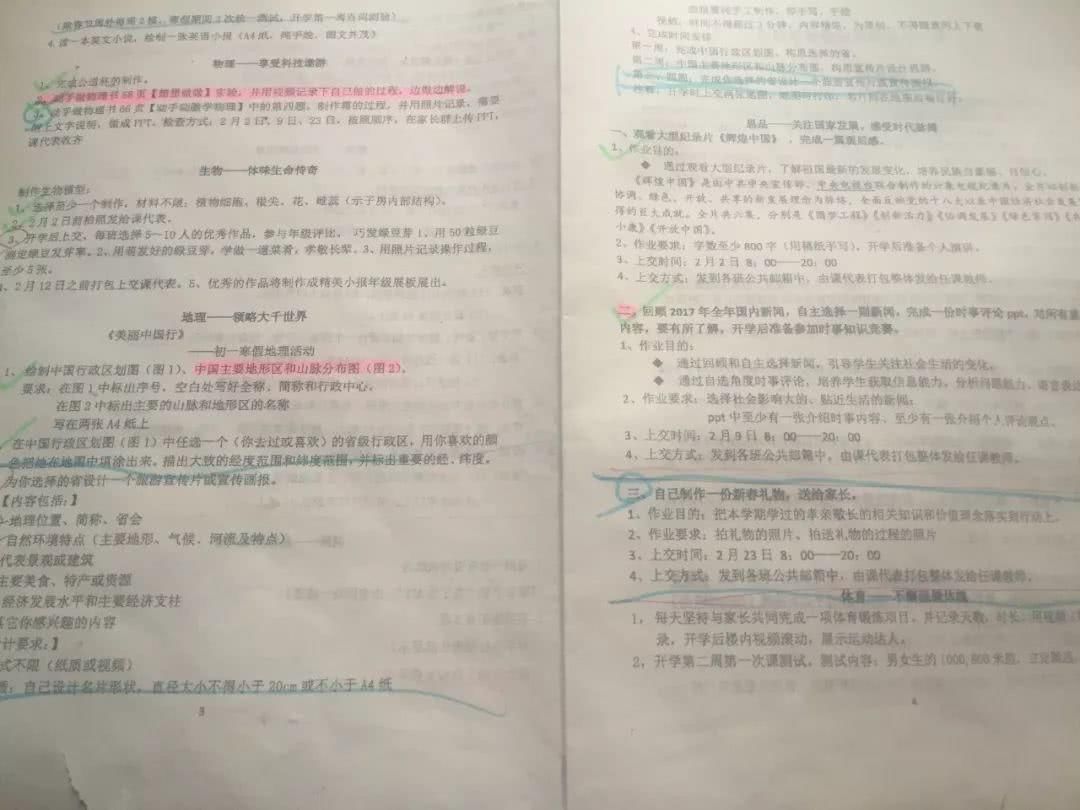 4.读一本英文小说,绘制一张英语小报(A4纸,纯手绘,图文并茂)
物理——享受科技遨游
1、完成公道杯的制作。
2、动手做物理书58页【想想做做】实验,并用视频记录下自己做的过程,边做边解说。
3、动手做物理书66页【动手动脑学物理】中的第四题,制作霜的过程,并用照片记录,需要
附上文字说明,做成PPT。检查方式:2月2日、9日、23日,按照顺序,在家长群上传PPT,
课代表收齐
生物——体味生命传奇
制作生物模型:
1、选择至少一个制作,材料不限:植物细胞、根尖、花、雌蕊(示子房内部结构)。
2、2月2日前拍照发给课代表。
3、开学后上交,每班选择5-10人的优秀作品,参与年级评比。巧发绿豆芽1、用50粒绿豆
测定绿豆发芽率。2、用萌发好的绿豆芽,学做一道菜肴,孝敬长辈。3、用照片记录操作过程,
至少5张。
、2月12日之前打包上交课代表。5、优秀的作品将制作成精美小报年级展板展出。
地理——领略大千世界
《美丽中国行》
——初一寒假地理活动
1、绘制中国行政区划图(图1)、中国主要地形区和山脉分布图(图2)。
要求:在图1中标出序号,空白处写好全称、简称和行政中心。
在图2中标出主要的山脉和地形区的名称
写在两张A4纸上
在中国行政区划图(图1)中任选一个(你去过或喜欢)的省级行政区,用你喜欢的颜
色把她在地图中填涂出来。描出大致的经度范围和纬度范围,并标出重要的经、纬度。
为你选择的省设计一个旅游宣传片或宣传画报。
【内容包括:】
地理位置、简称、省会
自然环境特点(主要地形、气候、河流及特点)
代表景观或建筑
主要美食、特产或资源
经济发展水平和主要经济支柱
其它你感兴趣的内容
计要求:】
式不限(纸质或视频)
质:自己设计名片形状,直径大小不得小于20cm或不小于A4纸
3
视频:时间不得超过3分钟,内容精炼,为原创,不得随意网上下载
4、完成时间安排
第一周:完成中国行政区划图,构思选择的省。
第二周:中国主要地形区和山脉分布图,构思宣传片设计思路。
思品——关注国家发展,感受时代脉搏
一、观看大型纪录片《辉煌中国》,完成一篇观后感。
1、作业目的:
◆ 通过观看大型纪录片,了解祖国最新的发展变化,培养民族自豪感、自信心。
《辉煌中国》是由中共中央宣传部、中央电视台联合制作的六集电视纪录片,全片以创新
协调、绿色、开放、共享的新发展理念为脉络,全面反映党的十八大以来中国经济社会发展
得的巨大成就。全片共六集,分别是《圆梦工程》《创新活力》《协调发展》《绿色家园》《共
小康》《开放中国》。
2、作业要求:字数至少800字(用稿纸手写),开学后准备个人演讲。
3、上交时间:2月2日8:00——20:00
4、上交方式:发到各班公共邮箱中,由课代表打包整体发给任课教师。
二、回顾2017年全年国内新闻,自主选择一则新闻,完成一份时事评论ppt。对所有
内容,要有所了解,开学后准备参加时事知识竞赛。
1、作业目的:
◆ 通过回顾和自主选择新闻,引导学生关注社会生活的变化。
◆ 通过自选角度时事评论,培养学生获取信息能力、分析问题能力、语言表达
2、作业要求:选择社会影响大的、贴近生活的新闻;
ppt中至少有一张介绍时事内容、至少有一张介绍个人评论观点。
3、上交时间:2月9日8:00——20:00
4、上交方式:发到各班公共邮箱中,由课代表打包整体发给任课教师。
三、自己制作一份新春礼物,送给家长。
1、作业目的:把本学期学过的孝亲敬长的相关知识和价值理念落实到行动上。
2、作业要求:拍礼物的照片、拍送礼物的过程的照片
3、上交时间:2月23日8:00——20:00
4、上交方式:发到各班公共邮箱中,由课代表打包整体发给任课教师。
体育——不断强健体魄
1,每天坚持与家长共同完成一项体育锻炼项目,并记录天数、时长,用视频
录,开学后楼内视频滚动,展示运动达人。
2,开学第二周第一次课测试,测试内容:男女生的1000,800米跑,立定跳远
4